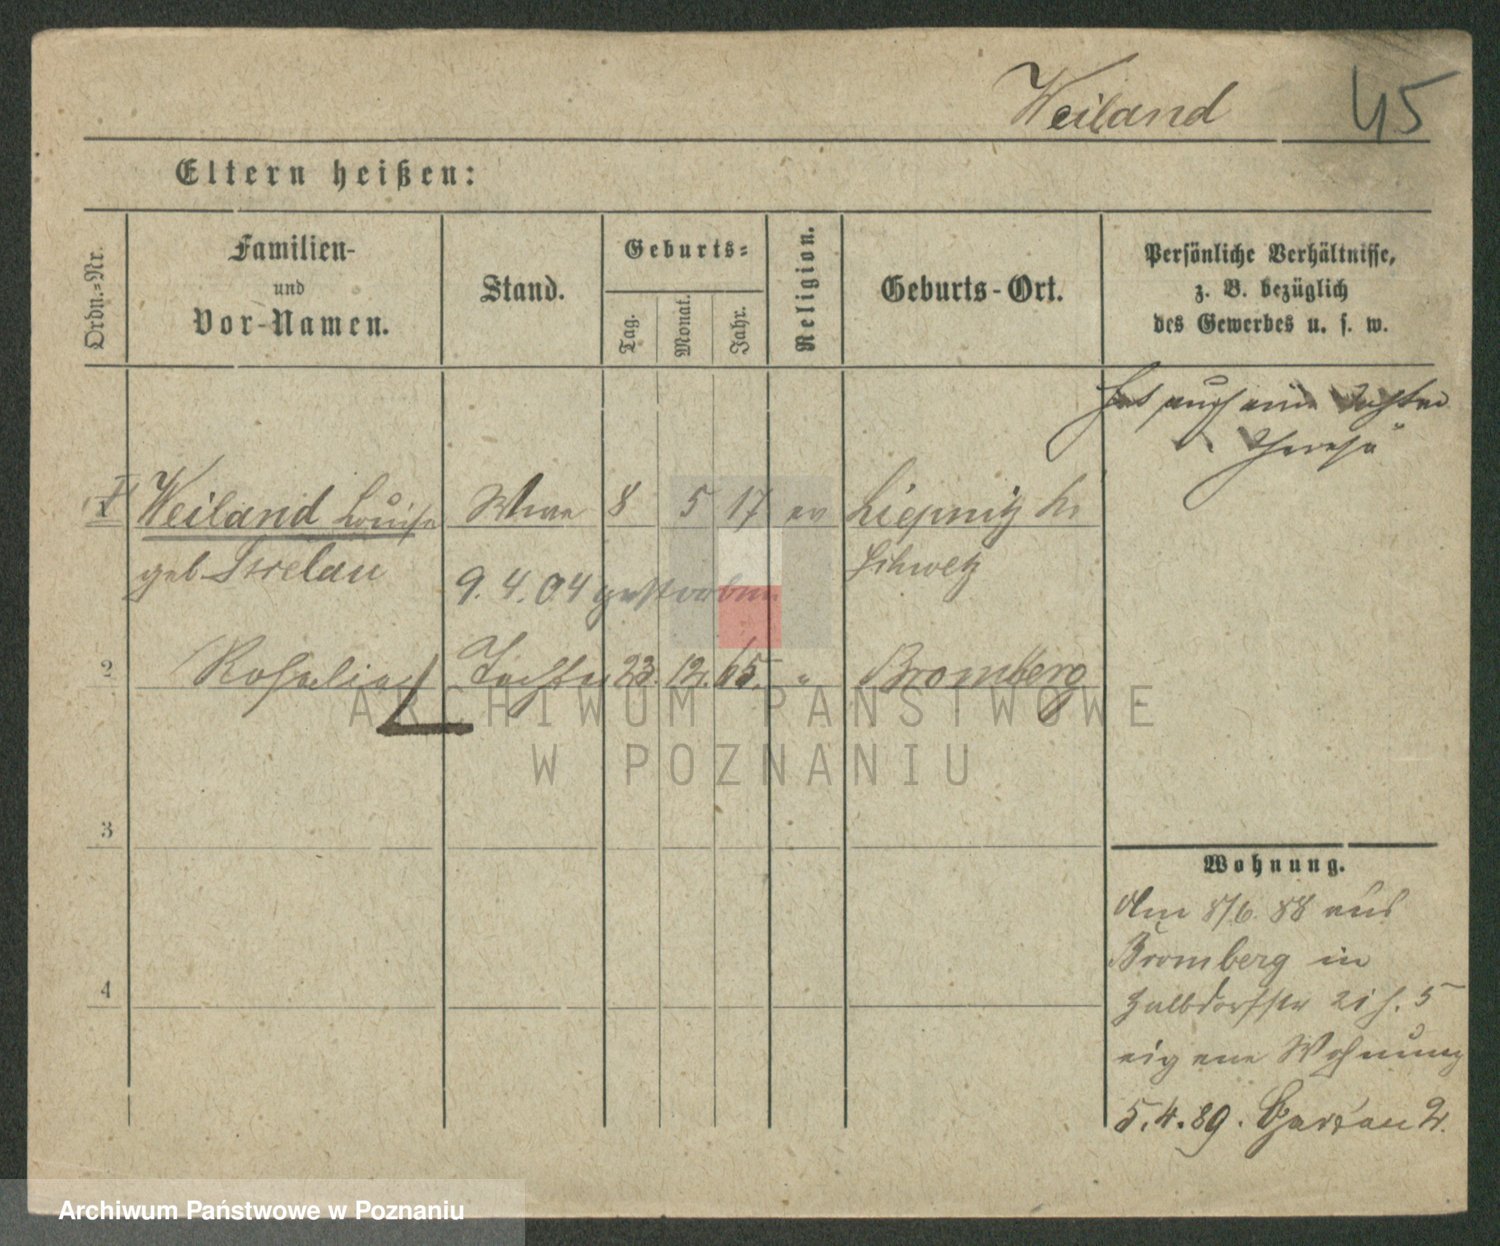 Weiland 45
Eltern heißen:
Ordn.-Nr.
Familien-
und
Vor-Namen.
Stand.
Geburts-
Tag.
Monat.
Jahr.
Religion.
Geburts-Ort.
Persönliche Verhältnisse,
z. B. bezüglich
des Gewerbes u. s. w.
Hat auch eine Tochter
Weiland Louise Wwe 8 5 17 ev
geb Strelau Schwetz
9. 4. 04 gestorben
2 Rosalie Tochter 23. 12. 65. " Bromberg
3
4
Wohnung.
Am 8/6. 88 aus
Bromberg in
21 5
eigene Wohnung
5.4.89. 2.
ARCHIWUM PAŃSTWOWE
W POZNANIU
Archiwum Państwowe w Poznaniu